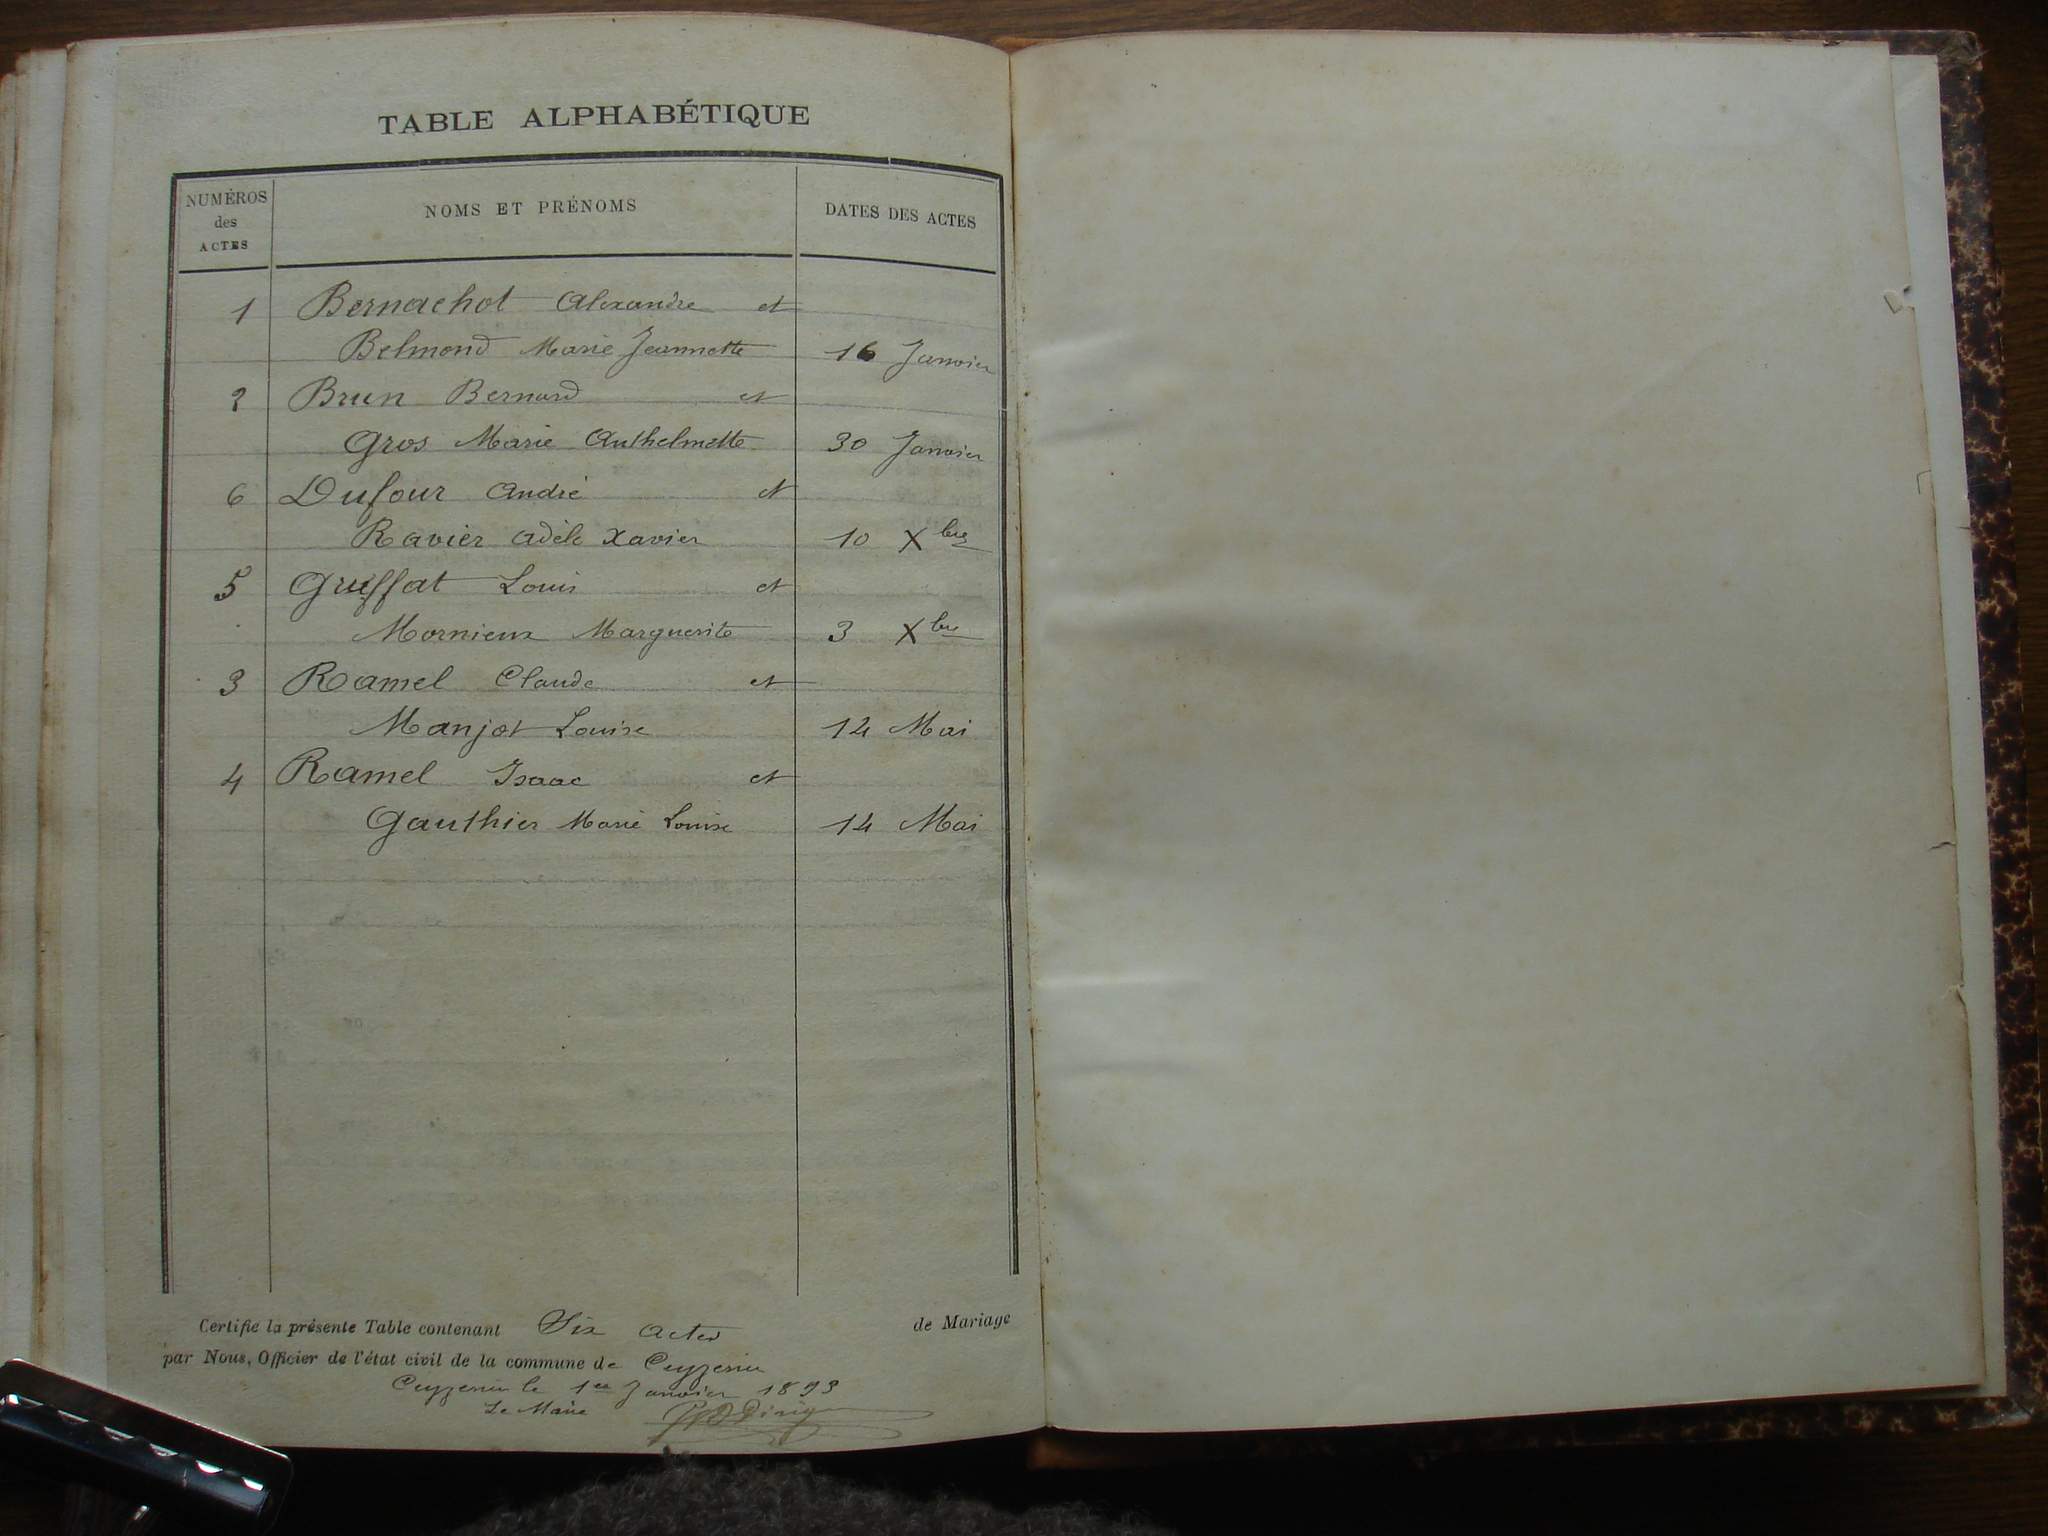 TABLE ALPHABÉTIQUE
NUMÉROS
des
ACTES
NOMS ET PRÉNOMS
DATES DES ACTES
1 Bernachot Alexandre et
Belmond Marie Jeannette 16 Janvier
2 Brun Bernard et
Gros Marie Anthelmette 30 Janvier
6 Dufour André et
Ravier Adèle Xavier 10 Xbre
5 Gruffat Louis et
Mornieux Marguerite 3 Xbre
3 Ramel Claude et
Manjot Louise 14 Mai
4 Ramel Isaac et
Gauthier Marie Louise 14 Mai
Certifie la présente Table contenant Six actes de Mariage
par Nous, Officier de l'état civil de la commune de Ceyzerieu
Ceyzerieu le 1er Janvier 1893
Le Maire